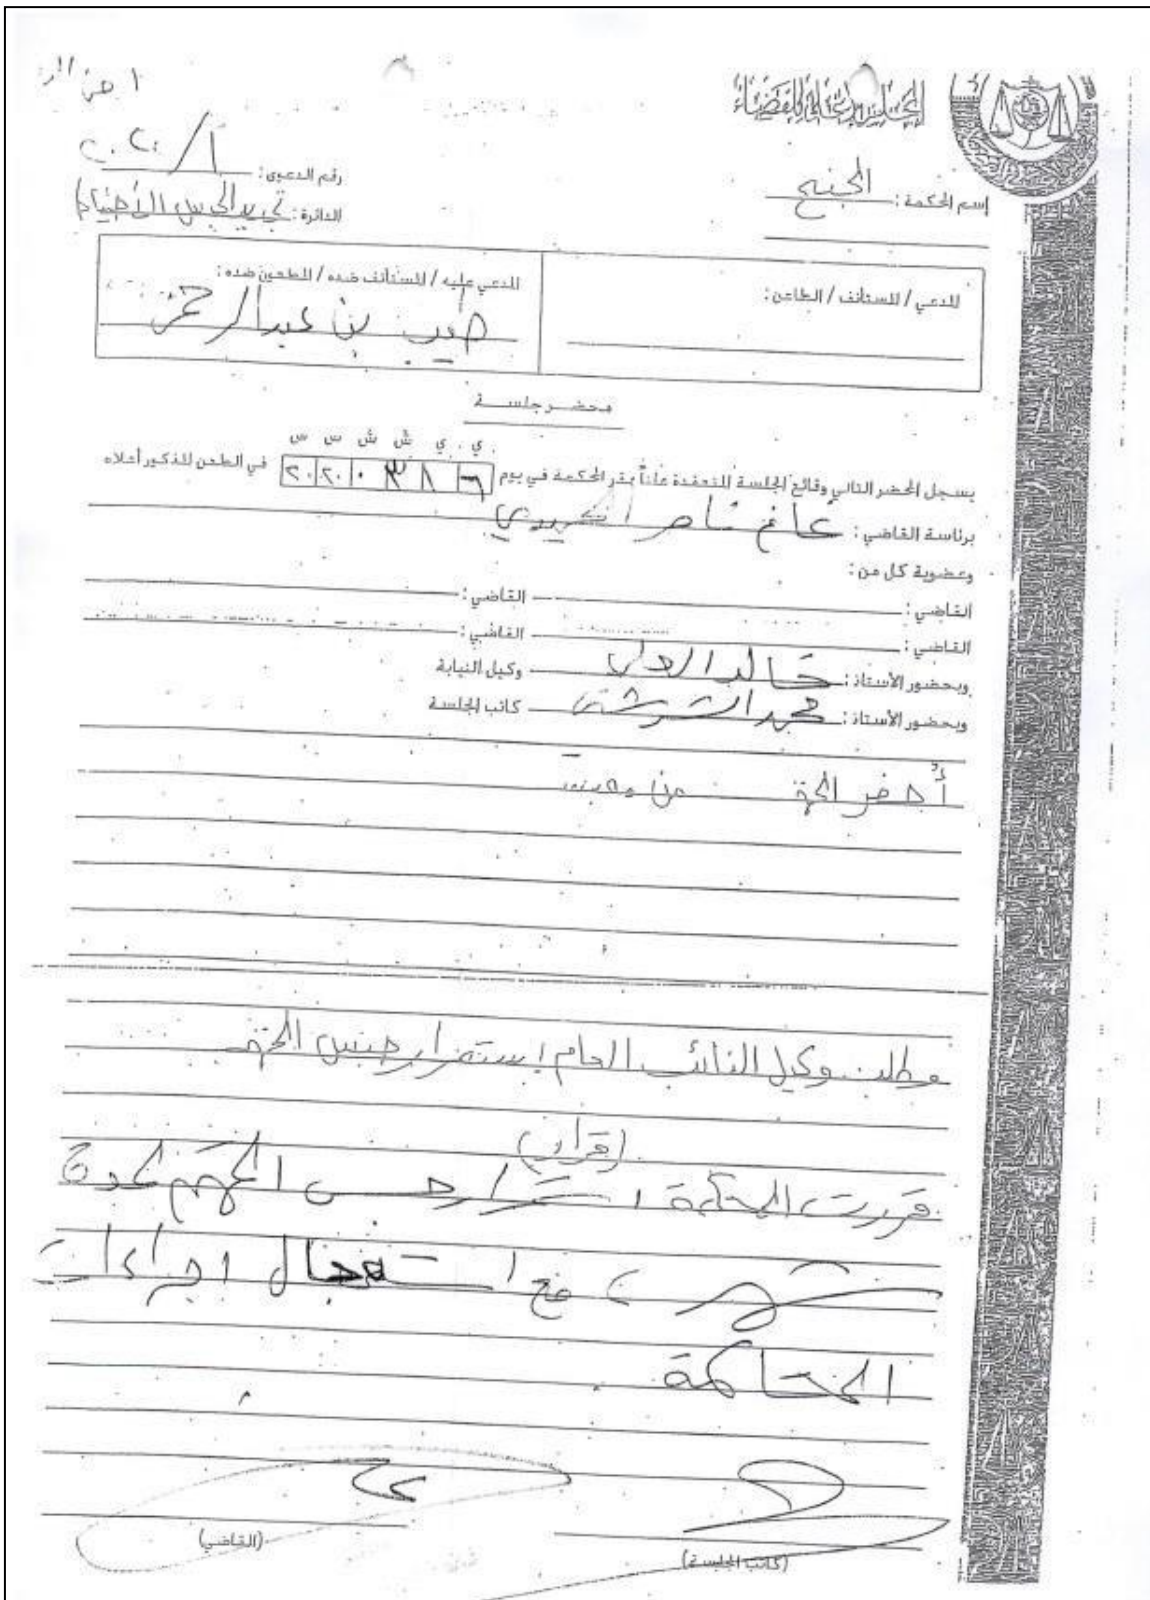 المجلس الأعلى للقضاء
إسم المحكمة: الجنح
رقم الدعوى: ١/٢٠٢٠
الدائرة: تجديد الحبس
المدعي / المستأنف / الطاعن:
المدعي عليه / المستأنف ضده / المطعون ضده:
بن عبدالرحمن
محضر جلسة
ي ي ش ش س س
يسجل المحضر التالي وقائع الجلسة المنعقدة علناً بمقر المحكمة في يوم في الطعن المذكور أعلاه
برئاسة القاضي:
وعضوية كل من:
القاضي: القاضي:
القاضي: القاضي:
وبحضور الأستاذ: خالد وكيل النيابة
وبحضور الأستاذ: محمد كاتب الجلسة
أحضر المتهم من محبسه
وطلب وكيل النائب العام استمرار حبس المتهم
(قرار)
قررت المحكمة استمرار حبس المتهم لمدة
مع استعجال اجراءات
المحاكمة
(القاضي)
(كاتب الجلسة)